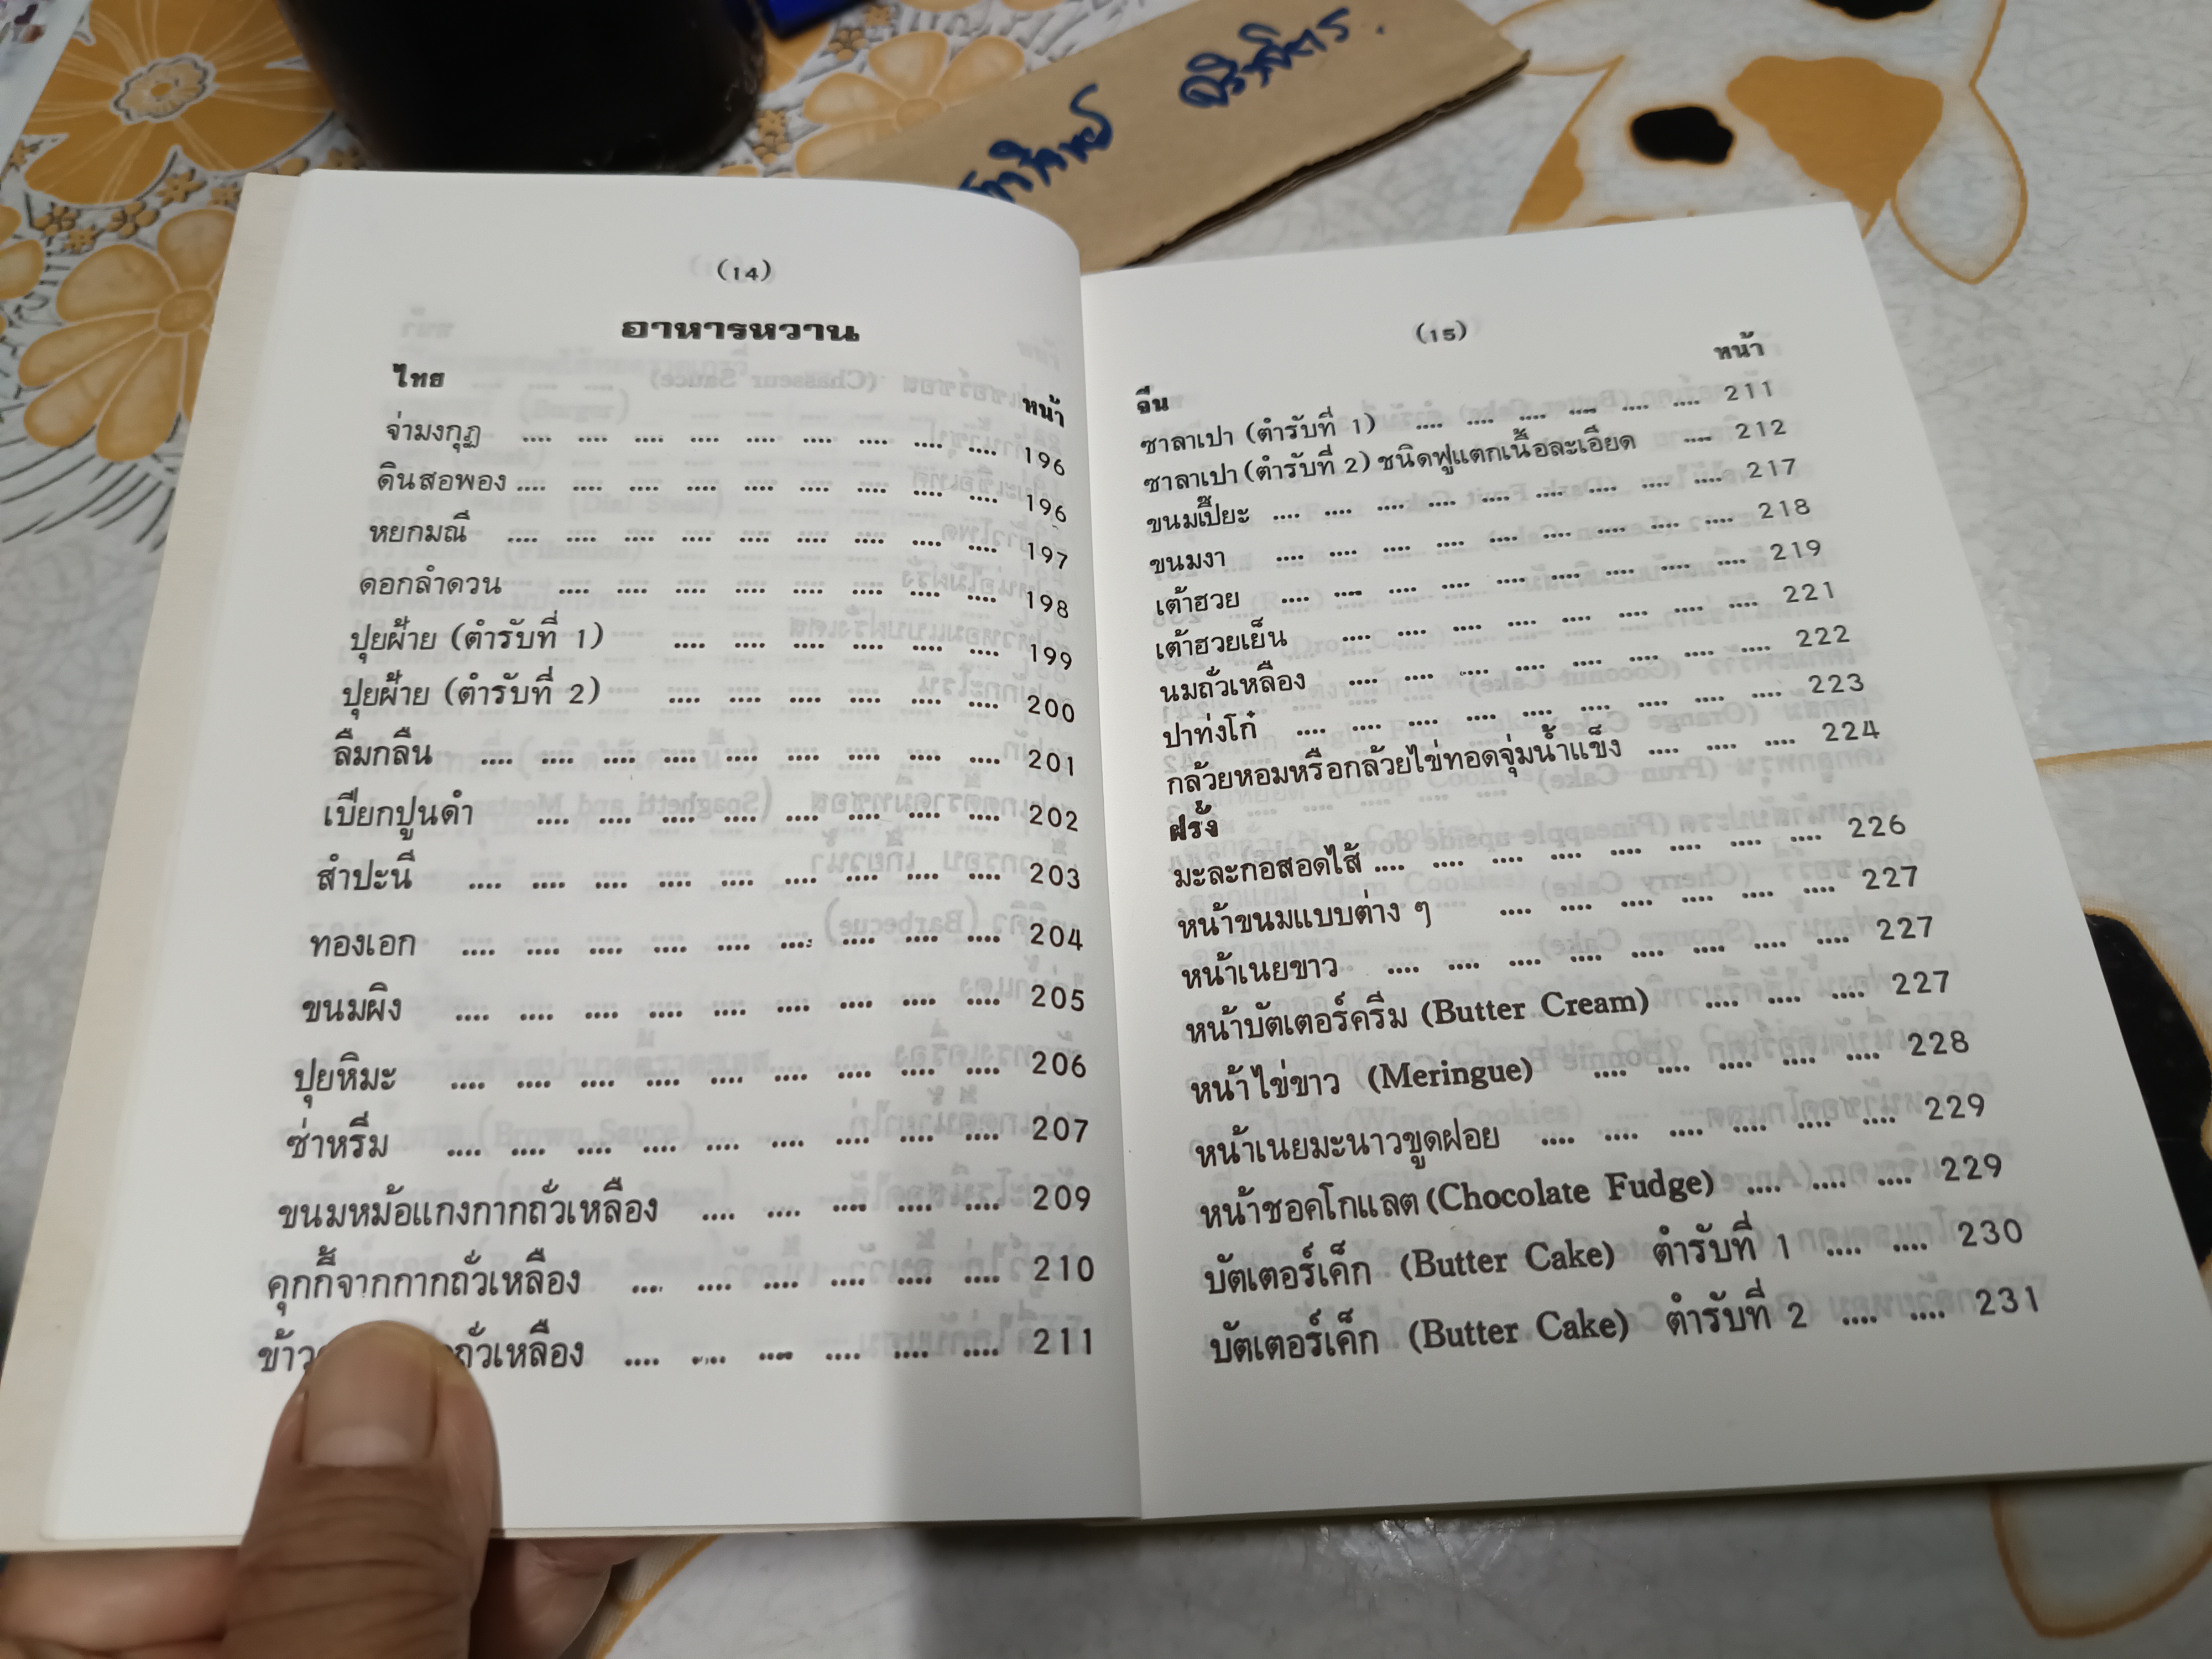 (14)
อาหารหวาน
ไทย
หน้า
จ่ามงกุฎ .... .... .... .... .... .... .... .... .... 196
ดินสอพอง .... .... .... .... .... .... .... .... .... 196
หยกมณี .... .... .... .... .... .... .... .... .... 197
ดอกลำดวน .... .... .... .... .... .... .... .... 198
ปุยฝ้าย (ตำรับที่ 1) .... .... .... .... .... .... 199
ปุยฝ้าย (ตำรับที่ 2) .... .... .... .... .... .... 200
ลืมกลืน .... .... .... .... .... .... .... .... .... 201
เปียกปูนดำ .... .... .... .... .... .... .... .... 202
สำปะนี .... .... .... .... .... .... .... .... .... 203
ทองเอก .... .... .... .... .... .... .... .... .... 204
ขนมผิง .... .... .... .... .... .... .... .... .... 205
ปุยหิมะ .... .... .... .... .... .... .... .... .... 206
ซ่าหริ่ม .... .... .... .... .... .... .... .... .... 207
ขนมหม้อแกงกากถั่วเหลือง .... .... .... .... .... 209
คุกกี้จากกากถั่วเหลือง .... .... .... .... .... .... 210
ถั่วเหลือง .... .... .... .... .... .... 211
(15)
หน้า
จีน
ซาลาเปา (ตำรับที่ 1) .... .... .... .... .... .... 211
ซาลาเปา (ตำรับที่ 2) ชนิดฟูแตกเนื้อละเอียด .... 212
ขนมเปี๊ยะ .... .... .... .... .... .... .... .... .... 217
ขนมงา .... .... .... .... .... .... .... .... .... 218
เต้าฮวย .... .... .... .... .... .... .... .... .... 219
เต้าฮวยเย็น .... .... .... .... .... .... .... .... 221
นมถั่วเหลือง .... .... .... .... .... .... .... .... 222
ปาท่งโก๋ .... .... .... .... .... .... .... .... .... 223
กล้วยหอมหรือกล้วยไข่ทอดจุ่มน้ำแข็ง .... .... .... 224
ฝรั่ง
มะละกอสอดไส้ .... .... .... .... .... .... .... .... 226
หน้าขนมแบบต่าง ๆ .... .... .... .... .... .... 227
หน้าเนยขาว .... .... .... .... .... .... .... .... 227
หน้าบัตเตอร์ครีม (Butter Cream) .... .... .... 227
หน้าไข่ขาว (Meringue) .... .... .... .... .... 228
หน้าเนยมะนาวขูดฝอย .... .... .... .... .... .... 229
หน้าชอคโกแลต (Chocolate Fudge) .... .... .... 229
บัตเตอร์เค็ก (Butter Cake) ตำรับที่ 1 .... .... 230
บัตเตอร์เค็ก (Butter Cake) ตำรับที่ 2 .... .... 231